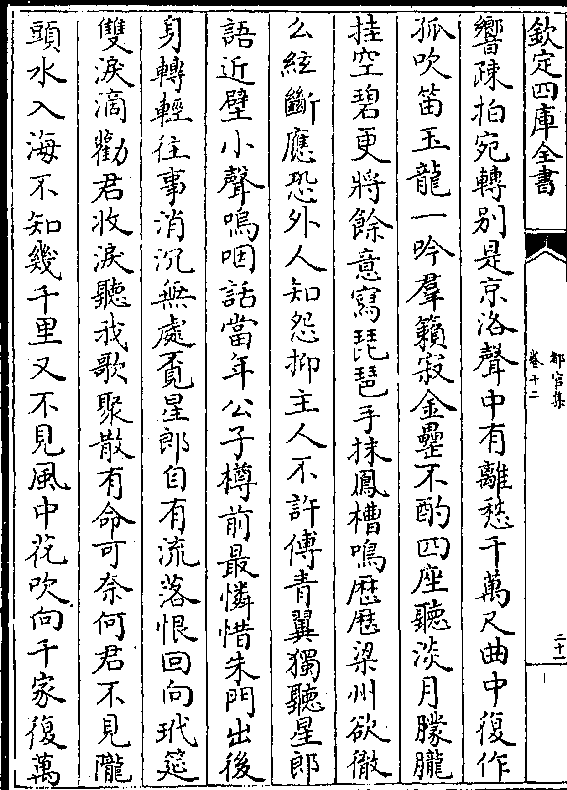 欽定四庫全書
都官集
卷十二
二十一
響疎拍宛轉别是京洛聲中有離愁千萬尺曲中復作
孤吹笛玉龍一吟羣籟寂金罍不酌四座聽淡月朦朧
挂空碧更將餘意寫琵琶手抹鳳槽鳴歴歴梁州欲徹
么絃斷應恐外人知怨抑主人不許傳青翼獨聽星郎
語近壁小聲嗚咽話當年公子樽前最憐惜朱門出後
身轉輕往事消沉無處覔星郎自有流落恨回向玳筵
雙淚滴勸君收淚聽我歌聚散有命可奈何君不見隴
頭水入海不知幾千里又不見風中花吹向千家復萬